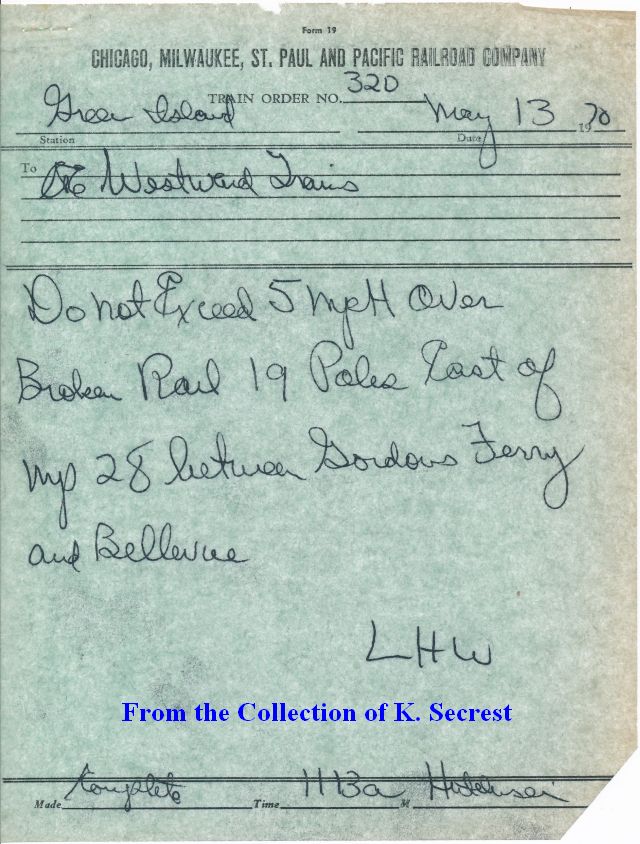 Form 19
CHICAGO, MILWAUKEE, ST. PAUL AND PACIFIC RAILROAD COMPANY
TRAIN ORDER NO. 320
Green Island May 13 1970
Station Date
To Westward Trains
Do not Exceed 5 mpH Over
Broken Rail 19 Poles East of
mp 28 between Gordons Ferry
and Bellevue
LHW
From the Collection of K. Secrest
Made Complete Time 1113a M